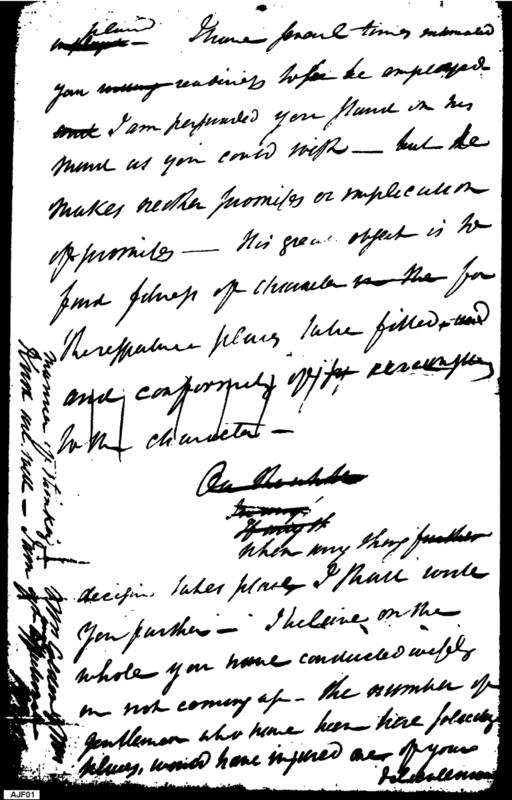 plaind
employed — I have several times intimated
your readiness to be employed
and I am persuaded you stand in his
mind as you could wish — but he
makes neither promises or implication
of promises — His great object is to
find fitness of character in the for
the places to be filled and
and conformity of
to the character —
On the whole
In any
If any th
When any thing further
decisive takes place I shall write
you further — I believe on the
whole you have conducted wisely
in not coming up — the number of
gentlemen who have been here soliciting
places, would have injured one of your
manner of thinking
Know not well — I am
AJF01